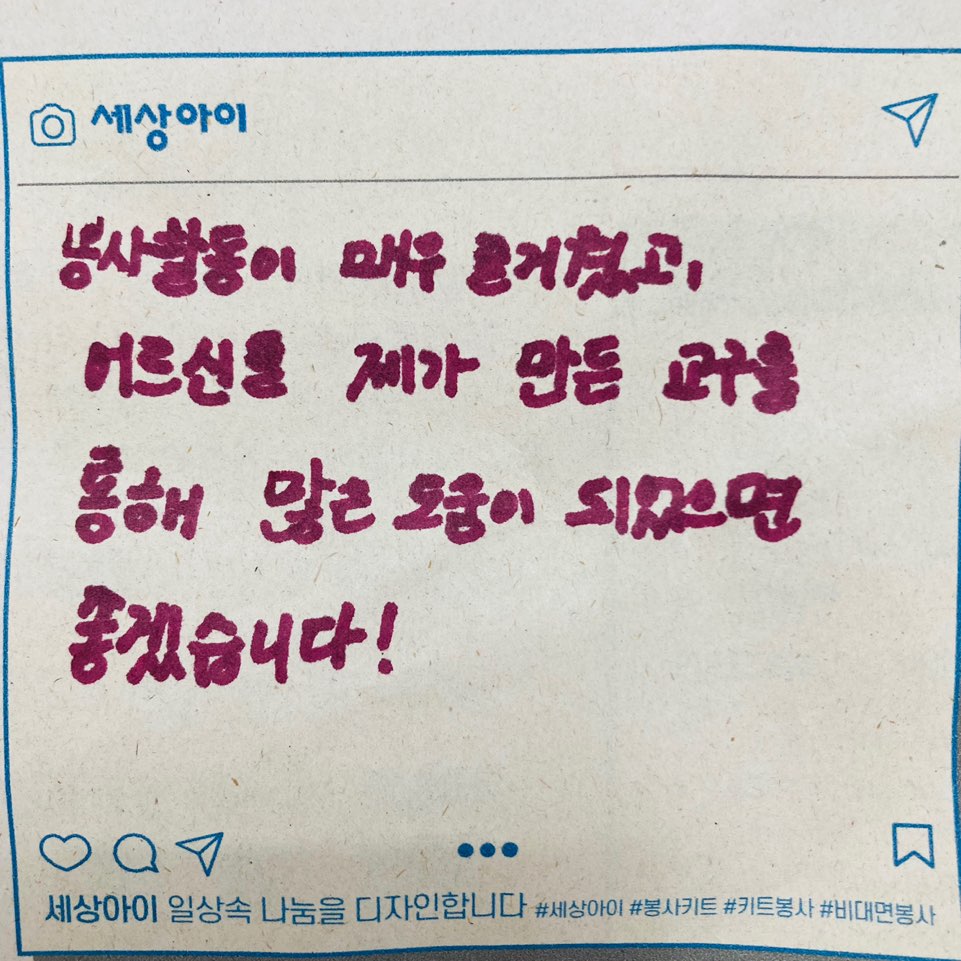 세상아이
봉사활동이 매우 즐거웠고,
어르신들 제가 만든 교구를
통해 많은 도움이 되었으면
좋겠습니다!
세상아이 일상속 나눔을 디자인합니다 #세상아이 #봉사키트 #키트봉사 #비대면봉사